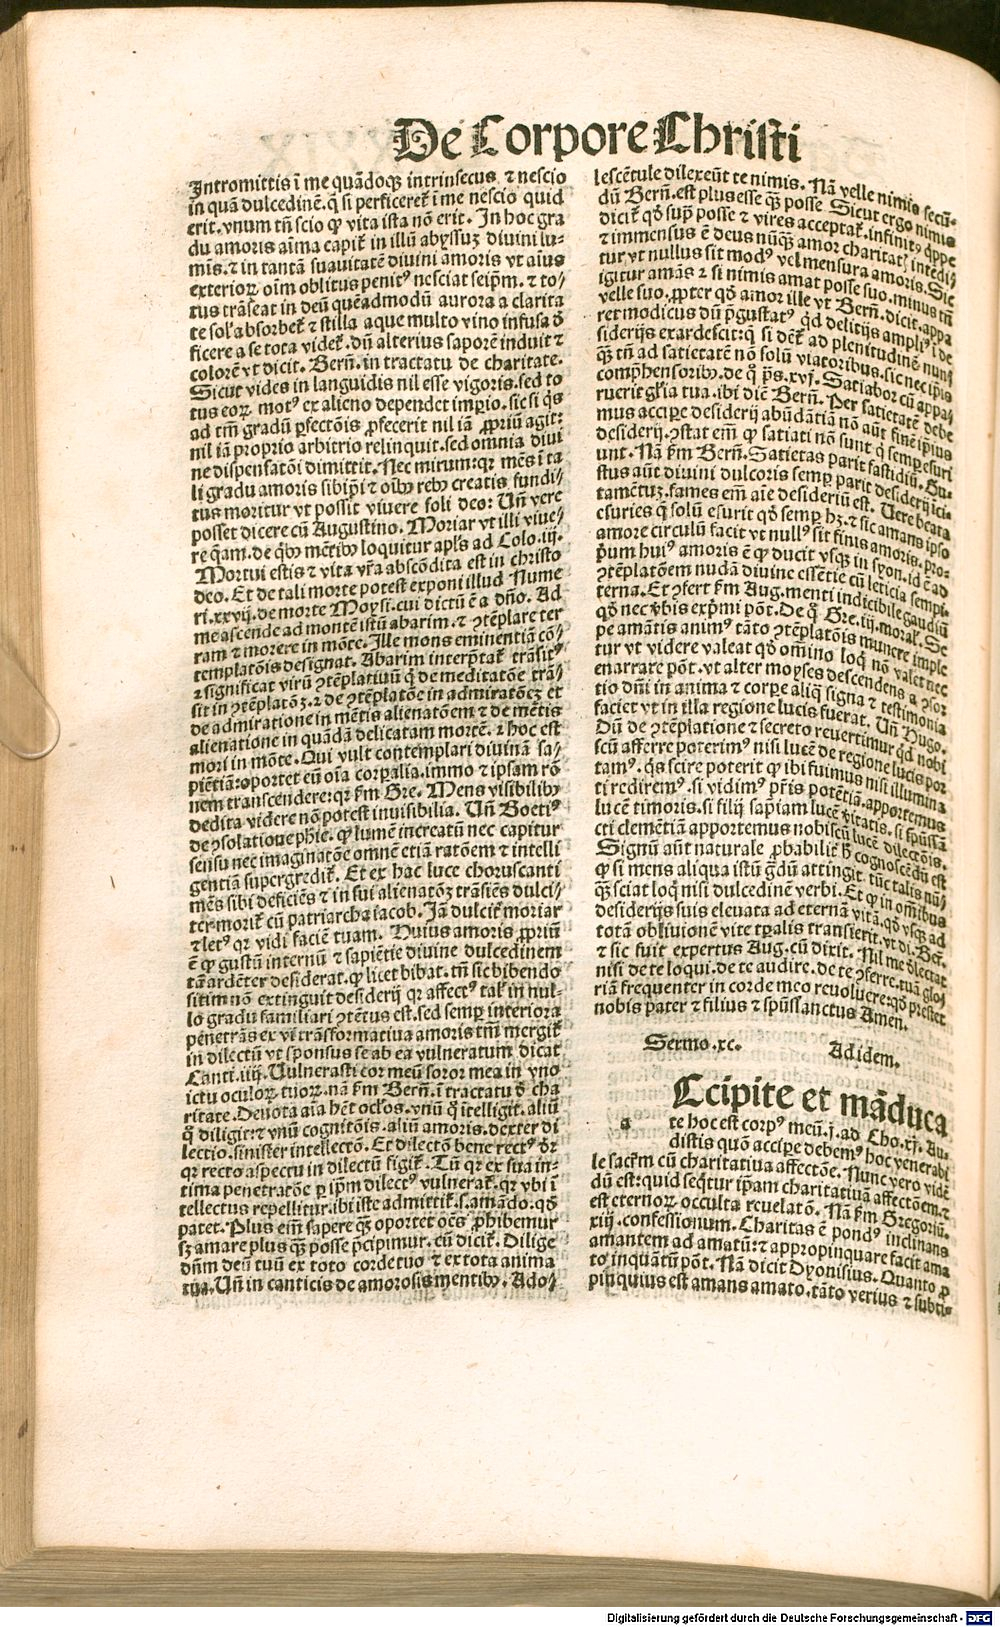 De Corpore Christi
Intromittis ī me quādoqꝫ intrinsecus ⁊ nescio
in quā dulcedinē. q̄ si perficeret̄ ī me nescio quid
erit. vnum tn̄ scio ꝙ vita ista nō erit. In hoc gra
du amoris aīma capit̄ in illū abyssuꝫ diuini lu-
mīs. ⁊ in tantā suauitatē diuini amoris vt aīus
exterioꝝ oīm oblitus penitꝰ nesciat seipm̄. ⁊ to/
tus trāseat in deū quēadmodū aurora a clarita
te solꝭ absorbet̄ ⁊ stilla aque multo vino infusa d̄
ficere a se tota videt̄. dū alterius saporē induit ⁊
colorē vt dicit. Bern̄. in tractatu de charitate.
Sicut vides in languidis nil esse vigoris. sed to
tus eoꝝ motꝰ ex alieno dependet imꝑio. sic si q̄s
ad tm̄ gradū ꝑfectōis ꝓfecerit nil iā ꝓpriū agit:
nil iā proprio arbitrio relinquit. sed omnia diui
ne dispensatōi dimittit. Nec mirum: qꝛ mēs ī ta
li gradu amoris sibiip̄i ⁊ oībꝫ rebꝫ creatis fundi/
tus moritur vt possit viuere soli deo: Un̄ vere
posset dicere cū Augustino. Moriar vt illi viue/
re q̄am. de q̄bꝫ mēribꝫ loquitur apl̄s ad Colo. iij.
Mortui estis ⁊ vita vr̄a abscōdita est in christo
deo. Et de tali morte potest exponi illud Nume
ri. xxvij. de morte Moysi. cui dictū ē a dn̄o. Ad
me ascende ad montē istū abarim. ⁊ ꝯtēplare ter
ram ⁊ morere in mōte. Ille mons eminentiā cō/
templatōis designat. Abarim interp̄tat̄ trāsitꝰ
⁊ significat virū ꝯtēplatiuū q̄ de meditatōe trā/
sit in ꝯtēplatōꝫ. ⁊ de ꝯtēplatōe in admiratōeꝫ et
de admiratione in mētis alienatōem ⁊ de mētis
alienatione in quādā delicatam mortē. ⁊ hoc est
mori in mōte. Qui vult contemplari diuinā sa/
piētiā: oportet eū oīa corꝑalia. immo ⁊ ipsam rō
nem transcendere: qꝛ ẜm Gre. Mens visibilibꝫ
dedita videre nō potest inuisibilia. Un̄ Boetiꝰ
de ꝯsolatiōe phīe. ꝙ lumē increatū nec capitur
sensu nec imaginatōe omnē etiā ratōem ⁊ intelli
gentiā supergredit̄. Et ex hac luce choruscanti
mēs sibi deficiēs ⁊ in sui alienatōꝫ trāsiēs dulci/
ter morit̄ cū patriarcha iacob. Jā dulcit̄ moriar
⁊ letꝰ qꝛ vidi faciē tuam. Huius amoris ꝓpriū
ē ꝙ gustū internū ⁊ sapiētie diuine dulcedinem
tā ardēter desiderat. ꝙ licet bibat. tn̄ sic bibendo
sitim nō extinguit desiderij qꝛ affectꝰ talꝭ in nul-
lo gradu familiari ꝯtētus est. sed semꝑ interiora
penetrās ex vi trāsformatiua amoris tm̄ mergit̄
in dilectū vt sponsus se ab ea vulneratum dicat
Canti. iiij. Vulnerasti cor meū soror mea in vno
ictu oculoꝝ tuoꝝ. nā ẜm Bern̄. ī tractatu d̄ cha
ritate. Deuota aīa hēt oclōs. vnū q̄ itelligit. aliū
q̄ diligit: ⁊ vnū cognitōis. aliū amoris. dexter di
lectio. sinister intellectō. Et dilectō bene rectꝰ dr̄
qꝛ recto aspectu in dilectū figit̄. Tū qꝛ ex sua in-
tima penetratōe ꝑ ip̄m dilectꝰ vulnerat̄. qꝛ vbi ī
tellectus repellitur. ibi iste admittit̄. s. amādo. qd̄
patet. Plus em̄ sapere qꝫ oportet oēs ꝓhibemur
sꝫ amare plus qꝫ posse p̄cipimur. cū dicit̄. Dilige
dn̄m deū tuū ex toto corde tuo ⁊ ex tota anima
tua. Un̄ in canticis de amorosis mentibꝫ. Ado/
lescētule dilexeūt te nimis. Nā velle nimis secū-
dū Bern̄. est plus esse qꝫ posse Sicut ergo nimis
dicit̄ qd̄ suꝑ posse ⁊ vires acceptat̄. infinitꝰ q̄ppe
⁊ immensus ē deus nūqꝫ amor charitatꝭ intēdi/
tur vt nullus sit modꝰ vel mensura amoris. Sic
igitur amās ⁊ si nimis amat posse suo. minus tn̄
velle suo. ꝓpter qd̄ amor ille vt Bern̄. dicit. appa
ret modicus dū p̄gustatꝰ q̄d delitijs ampliꝰ ī de
siderijs exardescit: q̄ si dēt̄ ad plenitudinē nunq̄
qꝫ tn̄ ad satietatē nō solū viatoribus. sic nec ip̄is
comp̄hensoribꝫ. de qͦ p̄s. xvj. Satiabor cū appa/
ruerit gl̄ia tua. ibi dic̄ Bern̄. Per satietatē debe
mus acciꝑe desiderij abūdātiā nō aūt finē ip̄ius
desiderij. ꝯstat em̄ ꝙ satiati nō sunt q̄ semꝑ esuri
unt. Nā ẜm Bern̄. Satietas parit fastidiū. Gu-
stus aūt diuini dulcoris semꝑ parit desiderij icita
tamētuꝫ. fames em̄ aīe desideriū est. Vere beata
esuries q̄ solū esurit qd̄ semꝑ hꝫ. ⁊ sic amans ipso
amore circulū facit vt nullꝰ sit finis amoris. pro-
pm̄ huiꝰ amoris ē ꝙ ducit vsqꝫ in syon. id ē ad
ꝯtēplatōem nudā diuine essētie cū leticia sempi-
terna. Et ꝯfert ẜm Aug. menti indicibile gaudiū
qd̄ nec v̄bis exp̄mi pōt. De qͦ Gre. iij. moral̄. Se
pe amātis animꝰ tāto ꝯtēplatōis munere imple
tur vt videre valeat qd̄ om̄ino loq̄ nō valet nec
enarrare pōt. vt alter moyses descendens a ꝯsor
tio dn̄i in anima ⁊ corꝑe aliq̄ signa ⁊ testimonia
faciet vt in illa regione lucis fuerat. Un̄ Hugo.
Dū de ꝯtēplatione ⁊ secreto reuertimur q̄d nobi
scū afferre poterimꝰ nisi lucē de regione lucis por
tamꝰ. q̄s scire poterit ꝙ ibi fuimus nisi illumina
ti redirem̄ꝰ. si vidimꝰ pr̄is potētiā. apportemus
lucē timoris. si filij sap̄iam lucē v̄itatis. si sp̄ussan
cti clemētiā apportemus nobiscū lucē dilectōis.
Signū aūt naturale ꝓbabilit̄ h̄ cognoscēdū est
ꝙ si mens aliqua istū ḡdū attingit. tūc talis nū/
qꝫ sciat loq̄ nisi dulcedinē verbi. Et ꝙ in om̄ibus
desiderijs suis eleuata ad eternā vitā. qd̄ vsqꝫ ad
totā obliuionē vite tꝑalis transierit. vt di. Bern̄.
⁊ sic fuit expertus Aug. cū dixit. Nil me d̄lectat
nisi de te loqui. de te audire. de te ꝯferre. tuā glo/
riā frequenter in corde meo reuoluere: qd̄ prestet
nobis pater ⁊ filius ⁊ sp̄ussanctus Amen.
Sermo. xc. Ad idem.
Ccipite et māduca
a te hoc est corpꝰ meū. j. ad Cho. xj. Au-
distis quō acciꝑe debemꝰ hoc venerabi
le sacr̄m cū charitatiua affectōe. Nunc vero vidē
dū est: quid seq̄tur ip̄am charitatiuā affectōem. ⁊
est eternoꝝ occulta reuelatō. Nā ẜm Gregoriū.
xiij. confessionum. Charitas ē pondꝰ inclinans
amantem ad amatū: ⁊ appropinquare facit ama
to inquātū pōt. Nā dicit Dyonisius. Quanto ꝓ
pinquius est amans amato. tāto verius ⁊ subti-
Digitalisierung gefördert durch die Deutsche Forschungsgemeinschaft - DFG